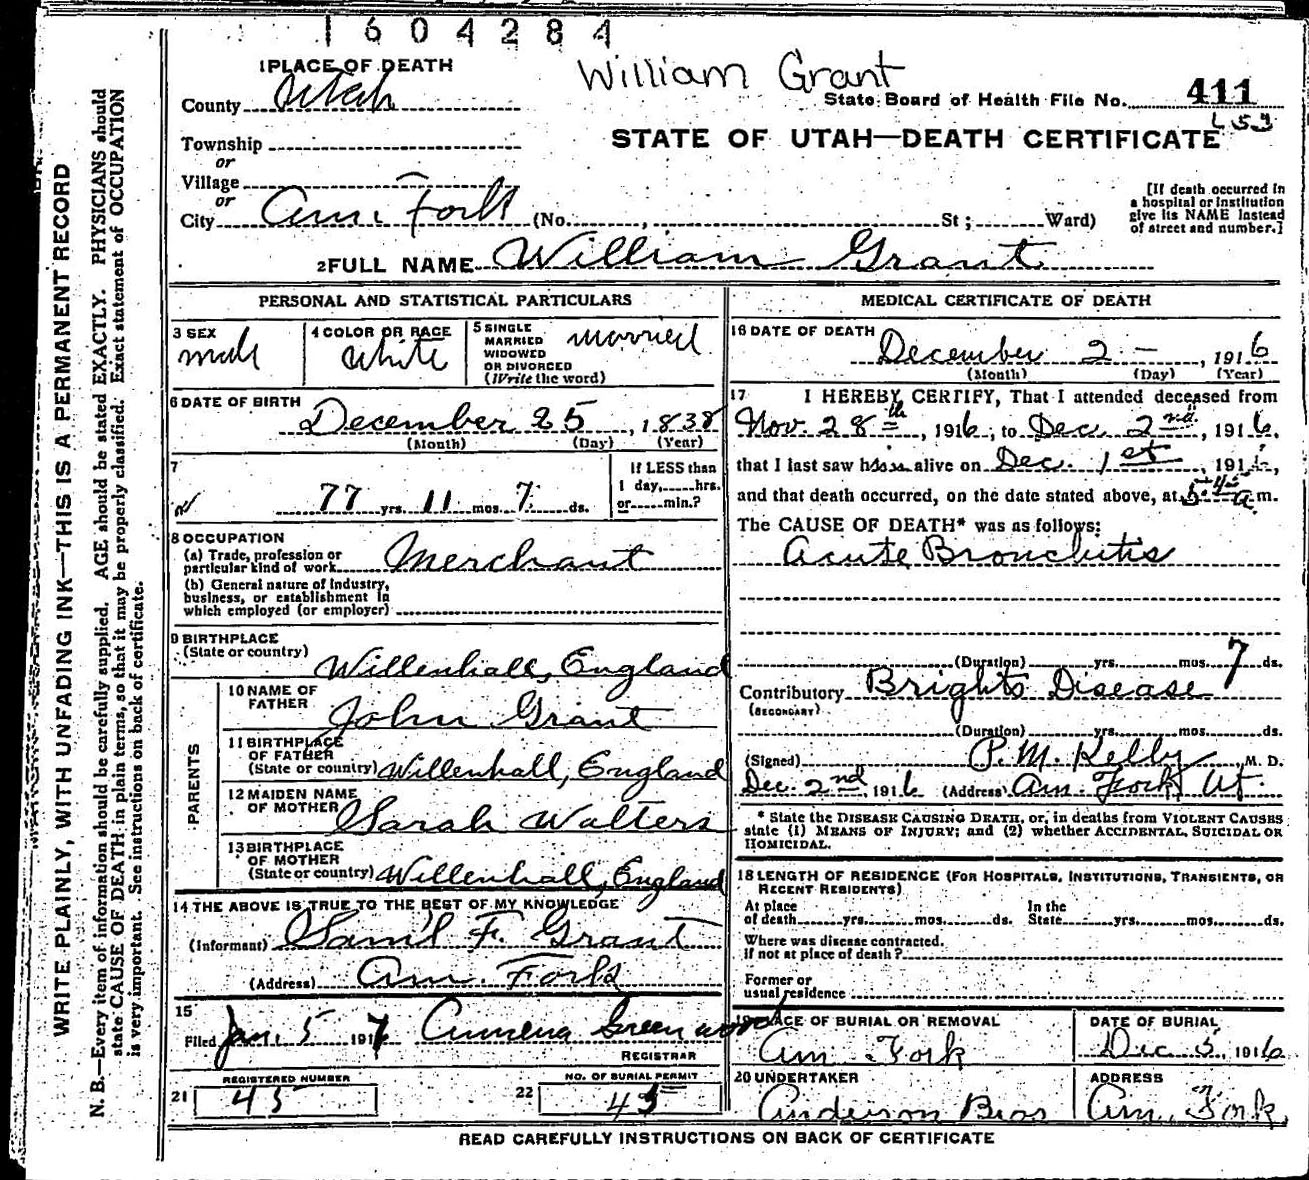 1604284
1 PLACE OF DEATH
William Grant
County Utah
State Board of Health File No. 411
Township
STATE OF UTAH—DEATH CERTIFICATE
or
Village
or
City Am. Fork (No. , St ; Ward)
[If death occurred in
a hospital or institution
give its NAME instead
of street and number.]
2 FULL NAME William Grant
PERSONAL AND STATISTICAL PARTICULARS
3 SEX
male
4 COLOR OR RACE
White
5 SINGLE
MARRIED
WIDOWED
OR DIVORCED
(Write the word)
married
6 DATE OF BIRTH
December 25, 1838
(Month) (Day) (Year)
7
77 yrs. 11 mos. 7 ds.
If LESS than
1 day, hrs.
or min.?
8 OCCUPATION
(a) Trade, profession or
particular kind of work Merchant
(b) General nature of industry,
business, or establishment in
which employed (or employer)
9 BIRTHPLACE
(State or country)
Willenhall, England
PARENTS
10 NAME OF
FATHER
John Grant
11 BIRTHPLACE
OF FATHER
(State or country) Willenhall, England
12 MAIDEN NAME
OF MOTHER
Sarah Walters
13 BIRTHPLACE
OF MOTHER
(State or country) Willenhall, England
14 THE ABOVE IS TRUE TO THE BEST OF MY KNOWLEDGE
(Informant) Sam'l F. Grant
(Address) Am. Fork
15
Filed Jan. 5 1917 Greenwood
REGISTRAR
21 REGISTERED NUMBER
45
22 NO. OF BURIAL PERMIT
45
MEDICAL CERTIFICATE OF DEATH
16 DATE OF DEATH
December 2 - , 1916
(Month) (Day) (Year)
17 I HEREBY CERTIFY, That I attended deceased from
Nov. 28th, 1916, to Dec. 2nd, 1916,
that I last saw him alive on Dec. 1st, 1916,
and that death occurred, on the date stated above, at 5-45 a.m.
The CAUSE OF DEATH* was as follows:
Acute Bronchitis
(Duration) yrs. mos. 7 ds.
Contributory Brights Disease
(SECONDARY)
(Duration) yrs. mos. ds.
(Signed) P. M. Kelly M. D.
Dec. 2nd, 1916 (Address) Am. Fork Ut.
* State the DISEASE CAUSING DEATH, or, in deaths from VIOLENT CAUSES
state (1) MEANS OF INJURY; and (2) whether ACCIDENTAL, SUICIDAL OR
HOMICIDAL.
18 LENGTH OF RESIDENCE (FOR HOSPITALS, INSTITUTIONS, TRANSIENTS, OR
RECENT RESIDENTS)
At place
of death yrs. mos. ds.
In the
State yrs. mos. ds.
Where was disease contracted.
If not at place of death?
Former or
usual residence
19 PLACE OF BURIAL OR REMOVAL
Am Fork
DATE OF BURIAL
Dec 5, 1916
20 UNDERTAKER
Anderson Bros
ADDRESS
Am. Fork
READ CAREFULLY INSTRUCTIONS ON BACK OF CERTIFICATE
WRITE PLAINLY, WITH UNFADING INK—THIS IS A PERMANENT RECORD
N. B.—Every item of information should be carefully supplied. AGE should be stated EXACTLY. PHYSICIANS should
state CAUSE OF DEATH in plain terms, so that it may be properly classified. Exact statement of OCCUPATION
is very important. See instructions on back of certificate.